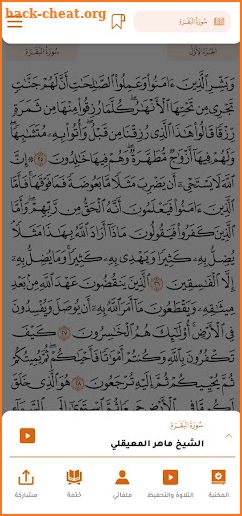 hack-cheat.org
سُورَةُ البَقَرَةِ
سُورَةُ البَقَرَةِ
الجزء الأول
وَبَشِّرِ الَّذِينَ ءَامَنُوا وَعَمِلُوا الصَّالِحَاتِ أَنَّ لَهُمْ جَنَّاتٍ
تَجْرِي مِن تَحْتِهَا الْأَنْهَارُ كُلَّمَا رُزِقُوا مِنْهَا مِن ثَمَرَةٍ
رِّزْقًا قَالُوا هَٰذَا الَّذِي رُزِقْنَا مِن قَبْلُ وَأُتُوا بِهِ مُتَشَابِهًا
وَلَهُمْ فِيهَا أَزْوَاجٌ مُّطَهَّرَةٌ وَهُمْ فِيهَا خَالِدُونَ ٢٥ إِنَّ
اللَّهَ لَا يَسْتَحْيِي أَن يَضْرِبَ مَثَلًا مَّا بَعُوضَةً فَمَا فَوْقَهَا فَأَمَّا
الَّذِينَ ءَامَنُوا فَيَعْلَمُونَ أَنَّهُ الْحَقُّ مِن رَّبِّهِمْ وَأَمَّا
الَّذِينَ كَفَرُوا فَيَقُولُونَ مَاذَا أَرَادَ اللَّهُ بِهَٰذَا مَثَلًا
يُضِلُّ بِهِ كَثِيرًا وَيَهْدِي بِهِ كَثِيرًا وَمَا يُضِلُّ بِهِ
إِلَّا الْفَاسِقِينَ ٢٦ الَّذِينَ يَنقُضُونَ عَهْدَ اللَّهِ مِن بَعْدِ
مِيثَاقِهِ وَيَقْطَعُونَ مَا أَمَرَ اللَّهُ بِهِ أَن يُوصَلَ وَيُفْسِدُونَ
فِي الْأَرْضِ أُولَٰئِكَ هُمُ الْخَاسِرُونَ ٢٧ كَيْفَ
تَكْفُرُونَ بِاللَّهِ وَكُنتُمْ أَمْوَاتًا فَأَحْيَاكُمْ ثُمَّ يُمِيتُكُمْ
ثُمَّ يُحْيِيكُمْ ثُمَّ إِلَيْهِ تُرْجَعُونَ ٢٨ هُوَ الَّذِي خَلَقَ
سُورَةُ البَقَرَةِ
الشيخ ماهر المعيقلي
المكتبة
التلاوة والتحفيظ
ملفاتي
ختمة
مشاركة
hack-cheat.org